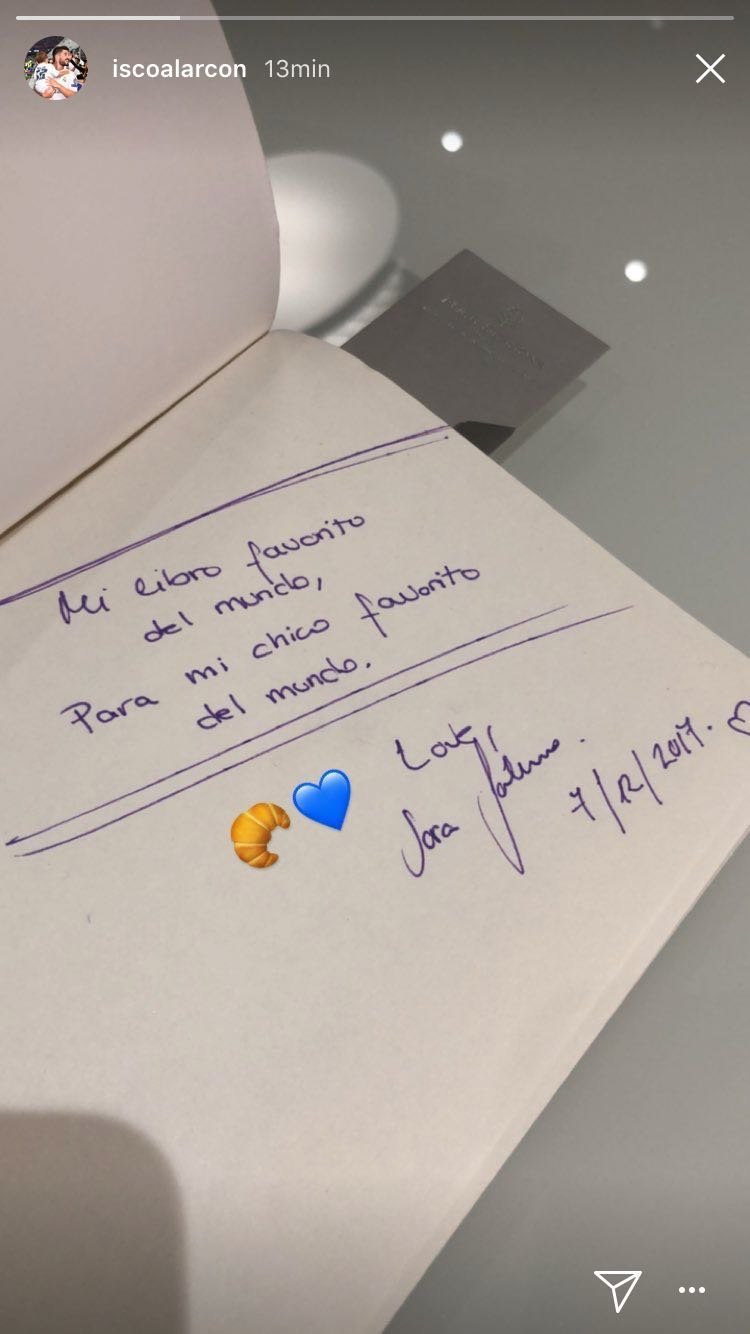 iscoalarcon 13min
Mi libro favorito
del mundo,
Para mi chico favorito
del mundo.
Love,
Sara
7/12/2017.